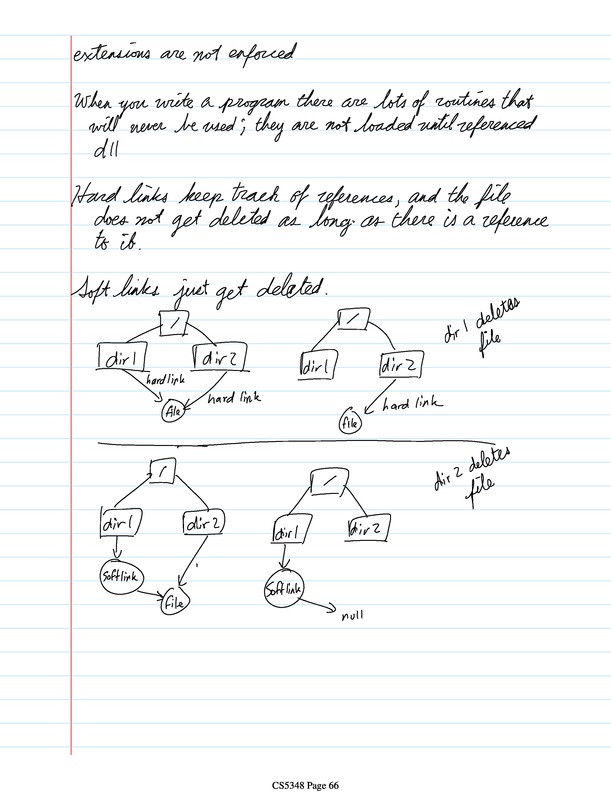 extensions are not enforced
When you write a program there are lots of routines that
will never be used; they are not loaded until referenced
dll
Hard links keep track of references, and the file
does not get deleted as long as there is a reference
to it.
Soft links just get deleted.
/
dir1
dir2
hard link
hard link
file
/
dir1
dir2
hard link
file
dir 1 deletes
file
/
dir1
dir2
Softlink
file
/
dir1
dir2
Softlink
null
dir 2 deletes
file
CS5348 Page 66